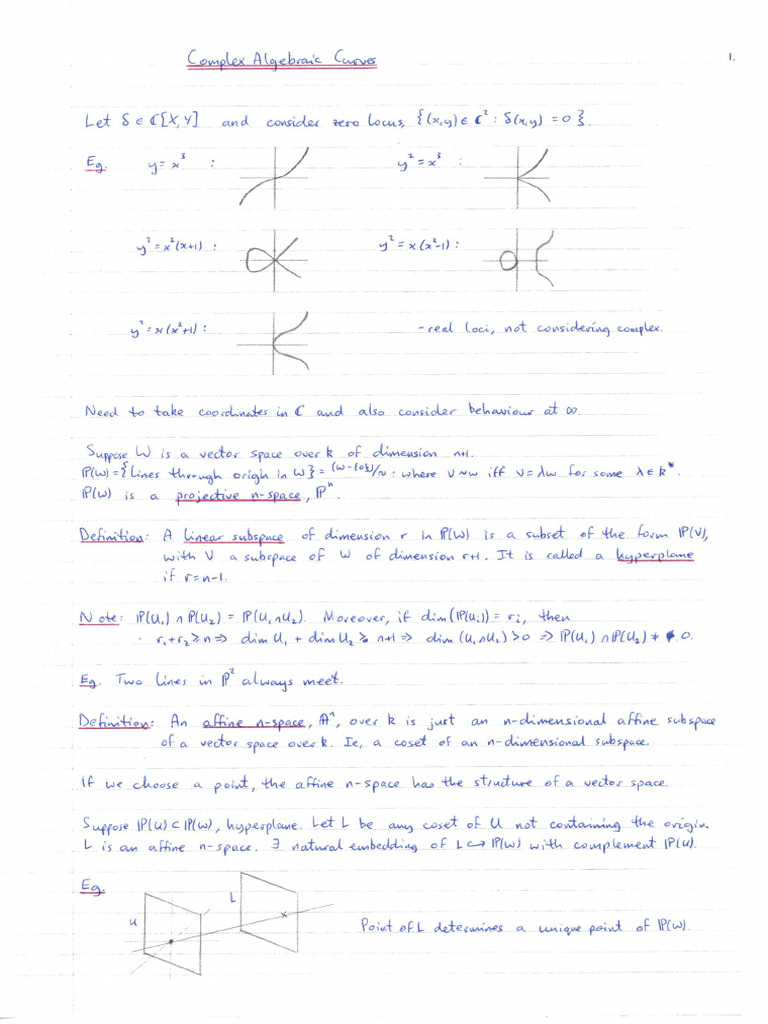 Complex Algebraic Curves
1.
Let δ ∈ ℂ[X,Y] and consider zero locus, {(x,y) ∈ ℂ² : δ(x,y) = 0}.
Eg. y = x³ : y² = x³ :
y² = x²(x+1) : y² = x(x²-1) :
y² = x(x²+1) : - real loci, not considering complex.
Need to take coordinates in ℂ and also consider behaviour at ∞.
Suppose W is a vector space over k of dimension n+1.
ℙ(W) = {lines through origin in W} = (W-{0})/~ : where v~w iff v=λw for some λ ∈ k*.
ℙ(W) is a projective n-space, ℙⁿ.
Definition: A linear subspace of dimension r in ℙ(W) is a subset of the form ℙ(V),
with V a subspace of W of dimension r+1. It is called a hyperplane
if r = n-1.
Note: ℙ(U₁) ∩ ℙ(U₂) = ℙ(U₁∩U₂). Moreover, if dim(ℙ(Uᵢ)) = rᵢ, then
r₁+r₂ ≥ n ⇒ dim U₁ + dim U₂ ≥ n+1 ⇒ dim (U₁∩U₂) > 0 ⇒ ℙ(U₁) ∩ ℙ(U₂) ≠ 0.
Eg. Two lines in ℙ² always meet.
Definition: An affine n-space, 𝔸ⁿ, over k is just an n-dimensional affine subspace
of a vector space over k. Ie, a coset of an n-dimensional subspace.
If we choose a point, the affine n-space has the structure of a vector space.
Suppose ℙ(U) ⊂ ℙ(W), hyperplane. Let L be any coset of U not containing the origin.
L is an affine n-space. ∃ natural embedding of L ↪ ℙ(W) with complement ℙ(U).
Eg.
L
U
Point of L determines a unique point of ℙ(W).